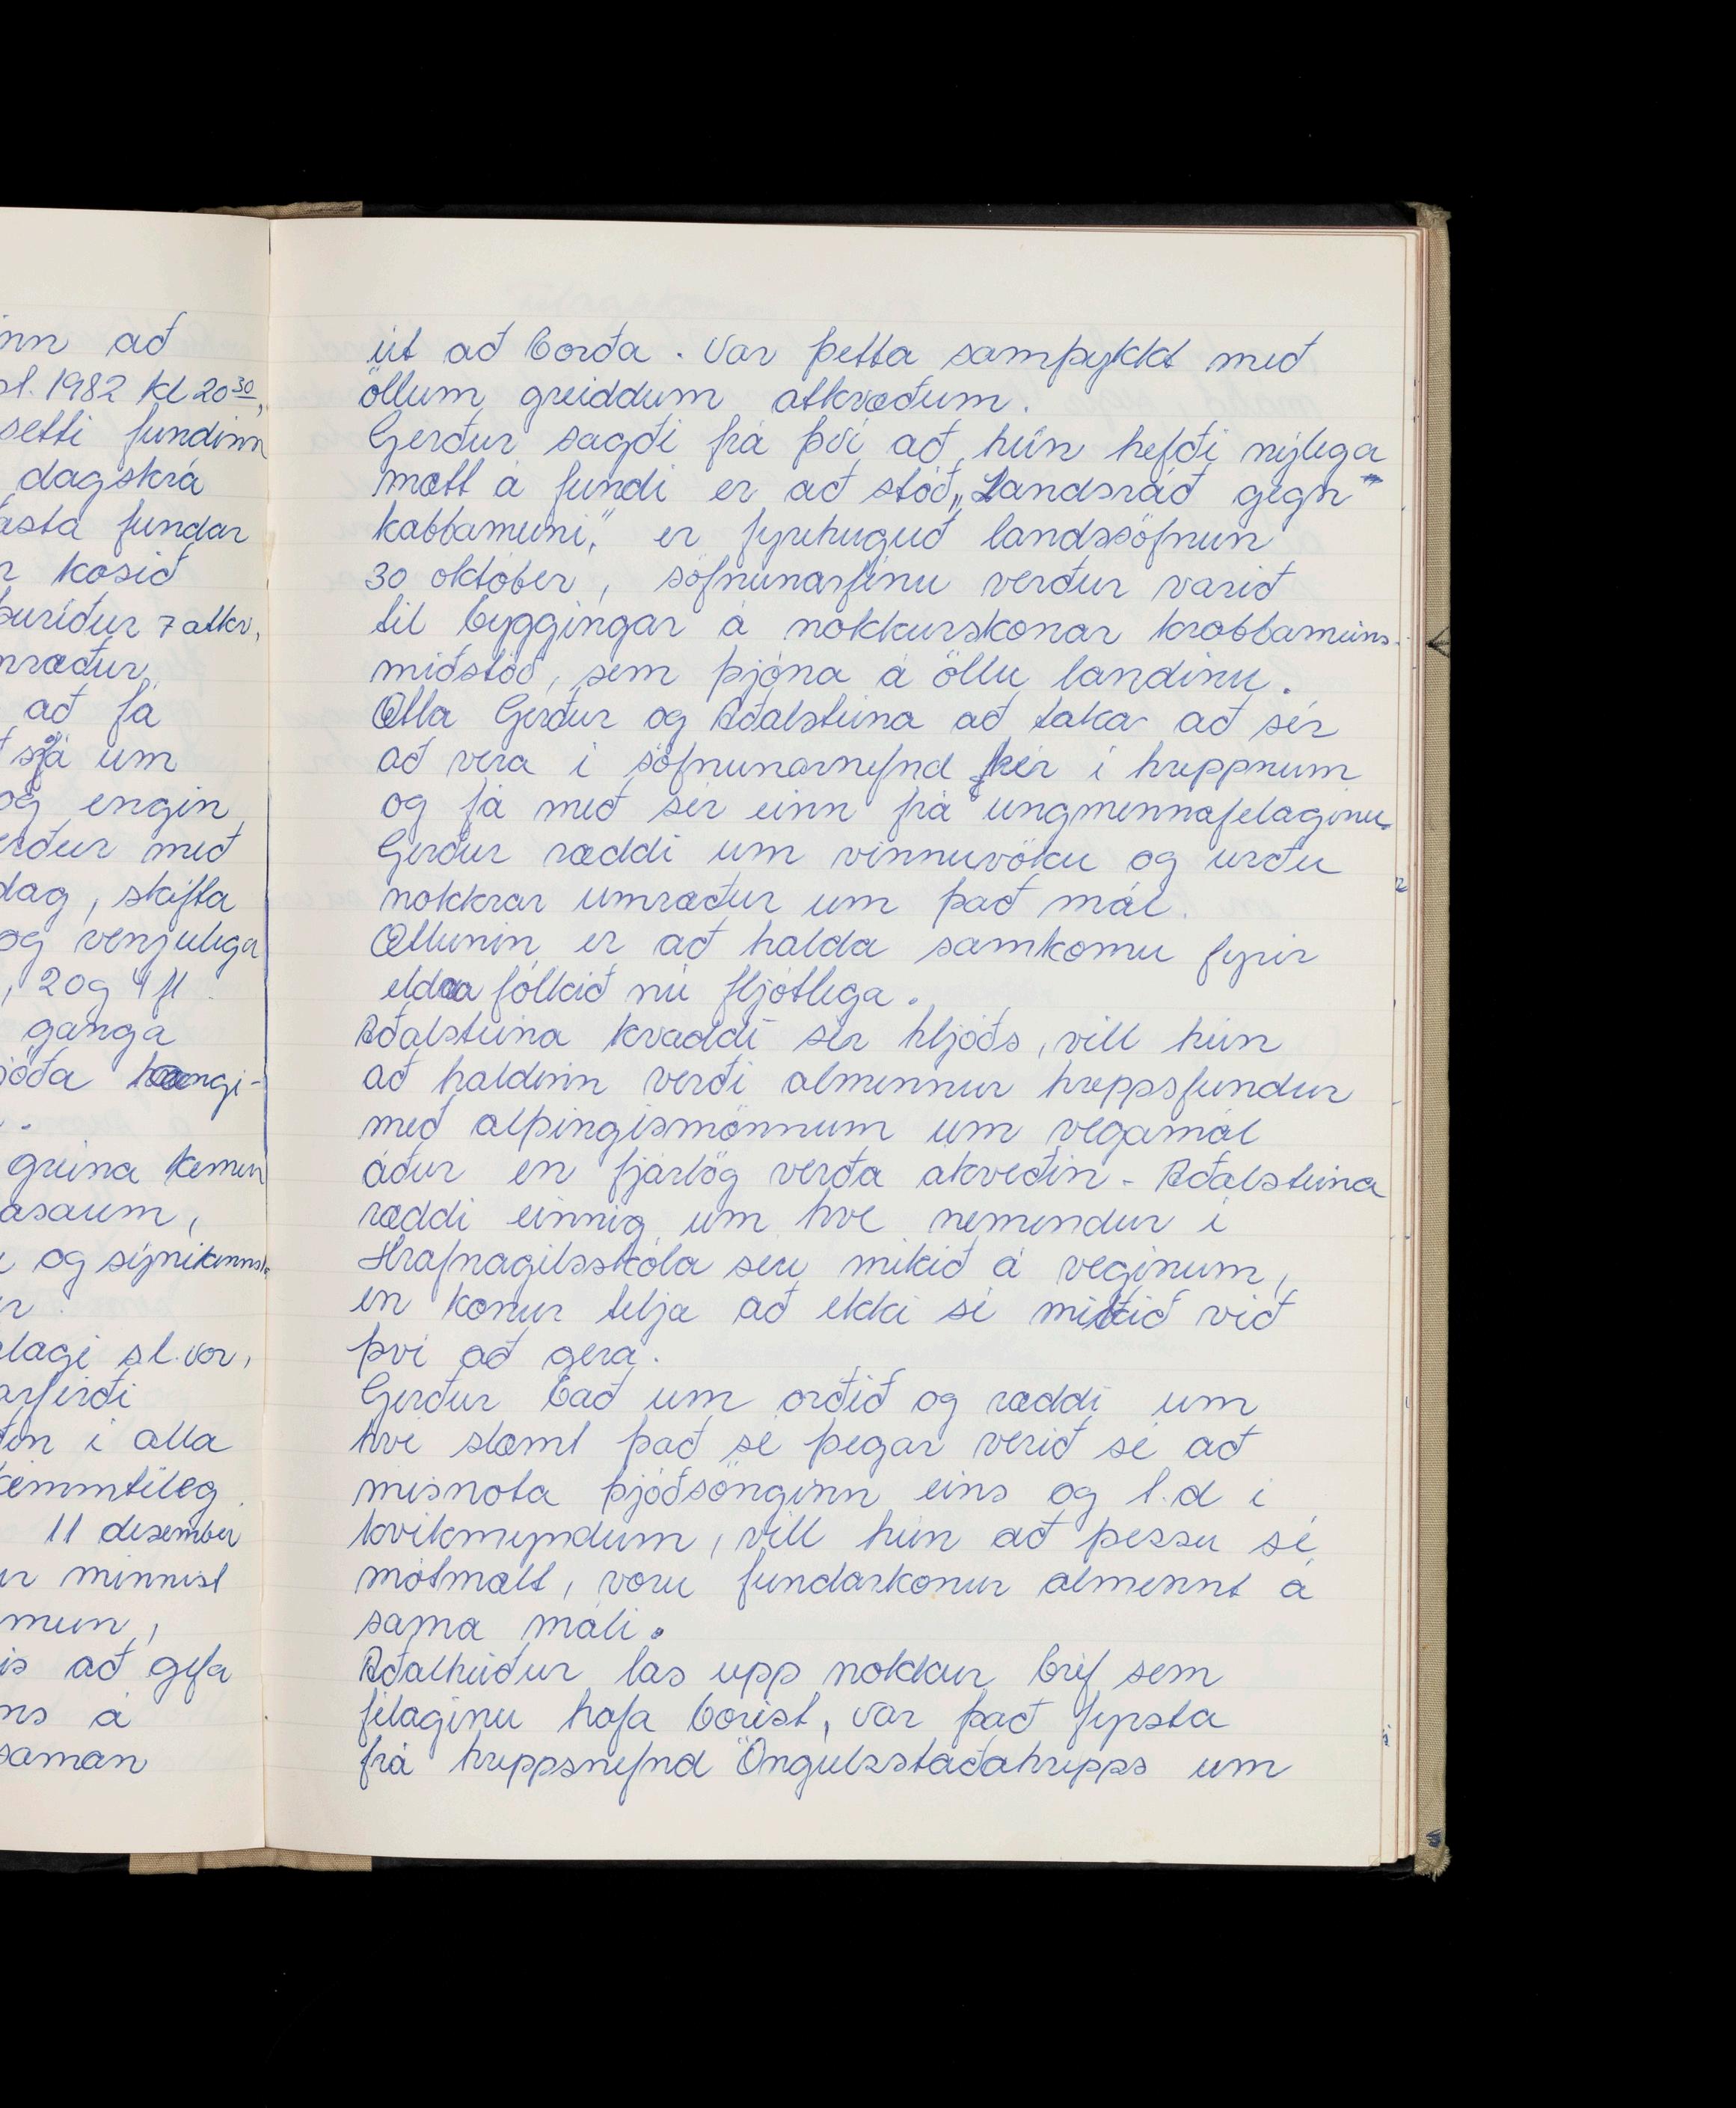 inn að
pl. 1982 kl 20 30,
setti fundinn
dagskrá
asta fundar
r kosið
þuríður 7 atkv,
mræður,
að fá
sjá um
og engin
erður með
dag, skifta
og venjulega
, 20g 4 fl.
ganga
jóða hangi-
greina kemur
asaum,
og sýnikennsl.
lagi s.l. vor,
arfirði
ðin i alla
kemmtileg.
11 desember
ur minnist
mun,
is að gefa
ns á
saman
út að borða. Var þetta samþykkt með
öllum greiddum atkvæðum.
Gerður sagði frá því að hún hefði nýlega
mætt á fundi er að stóð „Landsráð gegn
kabbameini," er fyrehuguð landssöfnun
30 október, söfnunarfénu verður varið
til byggingar á nokkurskonar krabbameins-
miðstöð, sem þjóna á öllu landinu.
Ætla Gerður og Aðalsteina að taka að sér
að vera i söfnunarnefnd hér i hreppnum
og fá með sér einn frá ungmennafelaginu.
Gerður ræddi um vinnuvöku og urðu
nokkrar umræður um það mál.
Ætlunin er að halda samkomu fyrir
eldra fólkið nú fljótlega.
Aðalsteina kvaddi sér hljóðs, vill hún
að haldinn verði almennur hreppsfundur
með alþingismönnum um vegamál
áður en fjárlög verða ákveðin - Aðalsteina
ræddi einnig um hve nemendur í
Hrafnagilsskóla séu mikið á veginum,
en konur telja að ekki sé mikið við
því að gera.
Gerður bað um orðið og ræddi um
hve slæmt það sé þegar verið sé að
misnota þjóðsönginn eins og t.d í
kvikmyndum, vill hún að þessu sé
mótmælt, voru fundarkonur almennt á
sama máli.
Aðalheiður las upp nokkur bréf sem
félaginu hafa borist, var það fyrsta
frá hreppsnefnd Öngulsstaðahrepps um